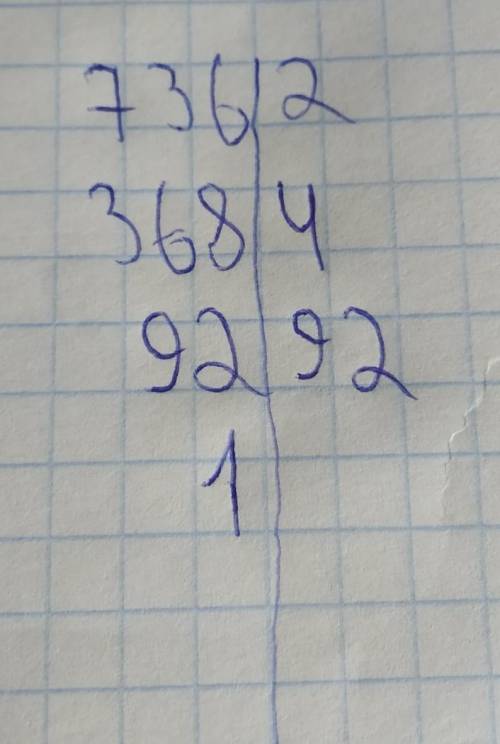 736 | 2
368 | 4
92 | 92
1 |